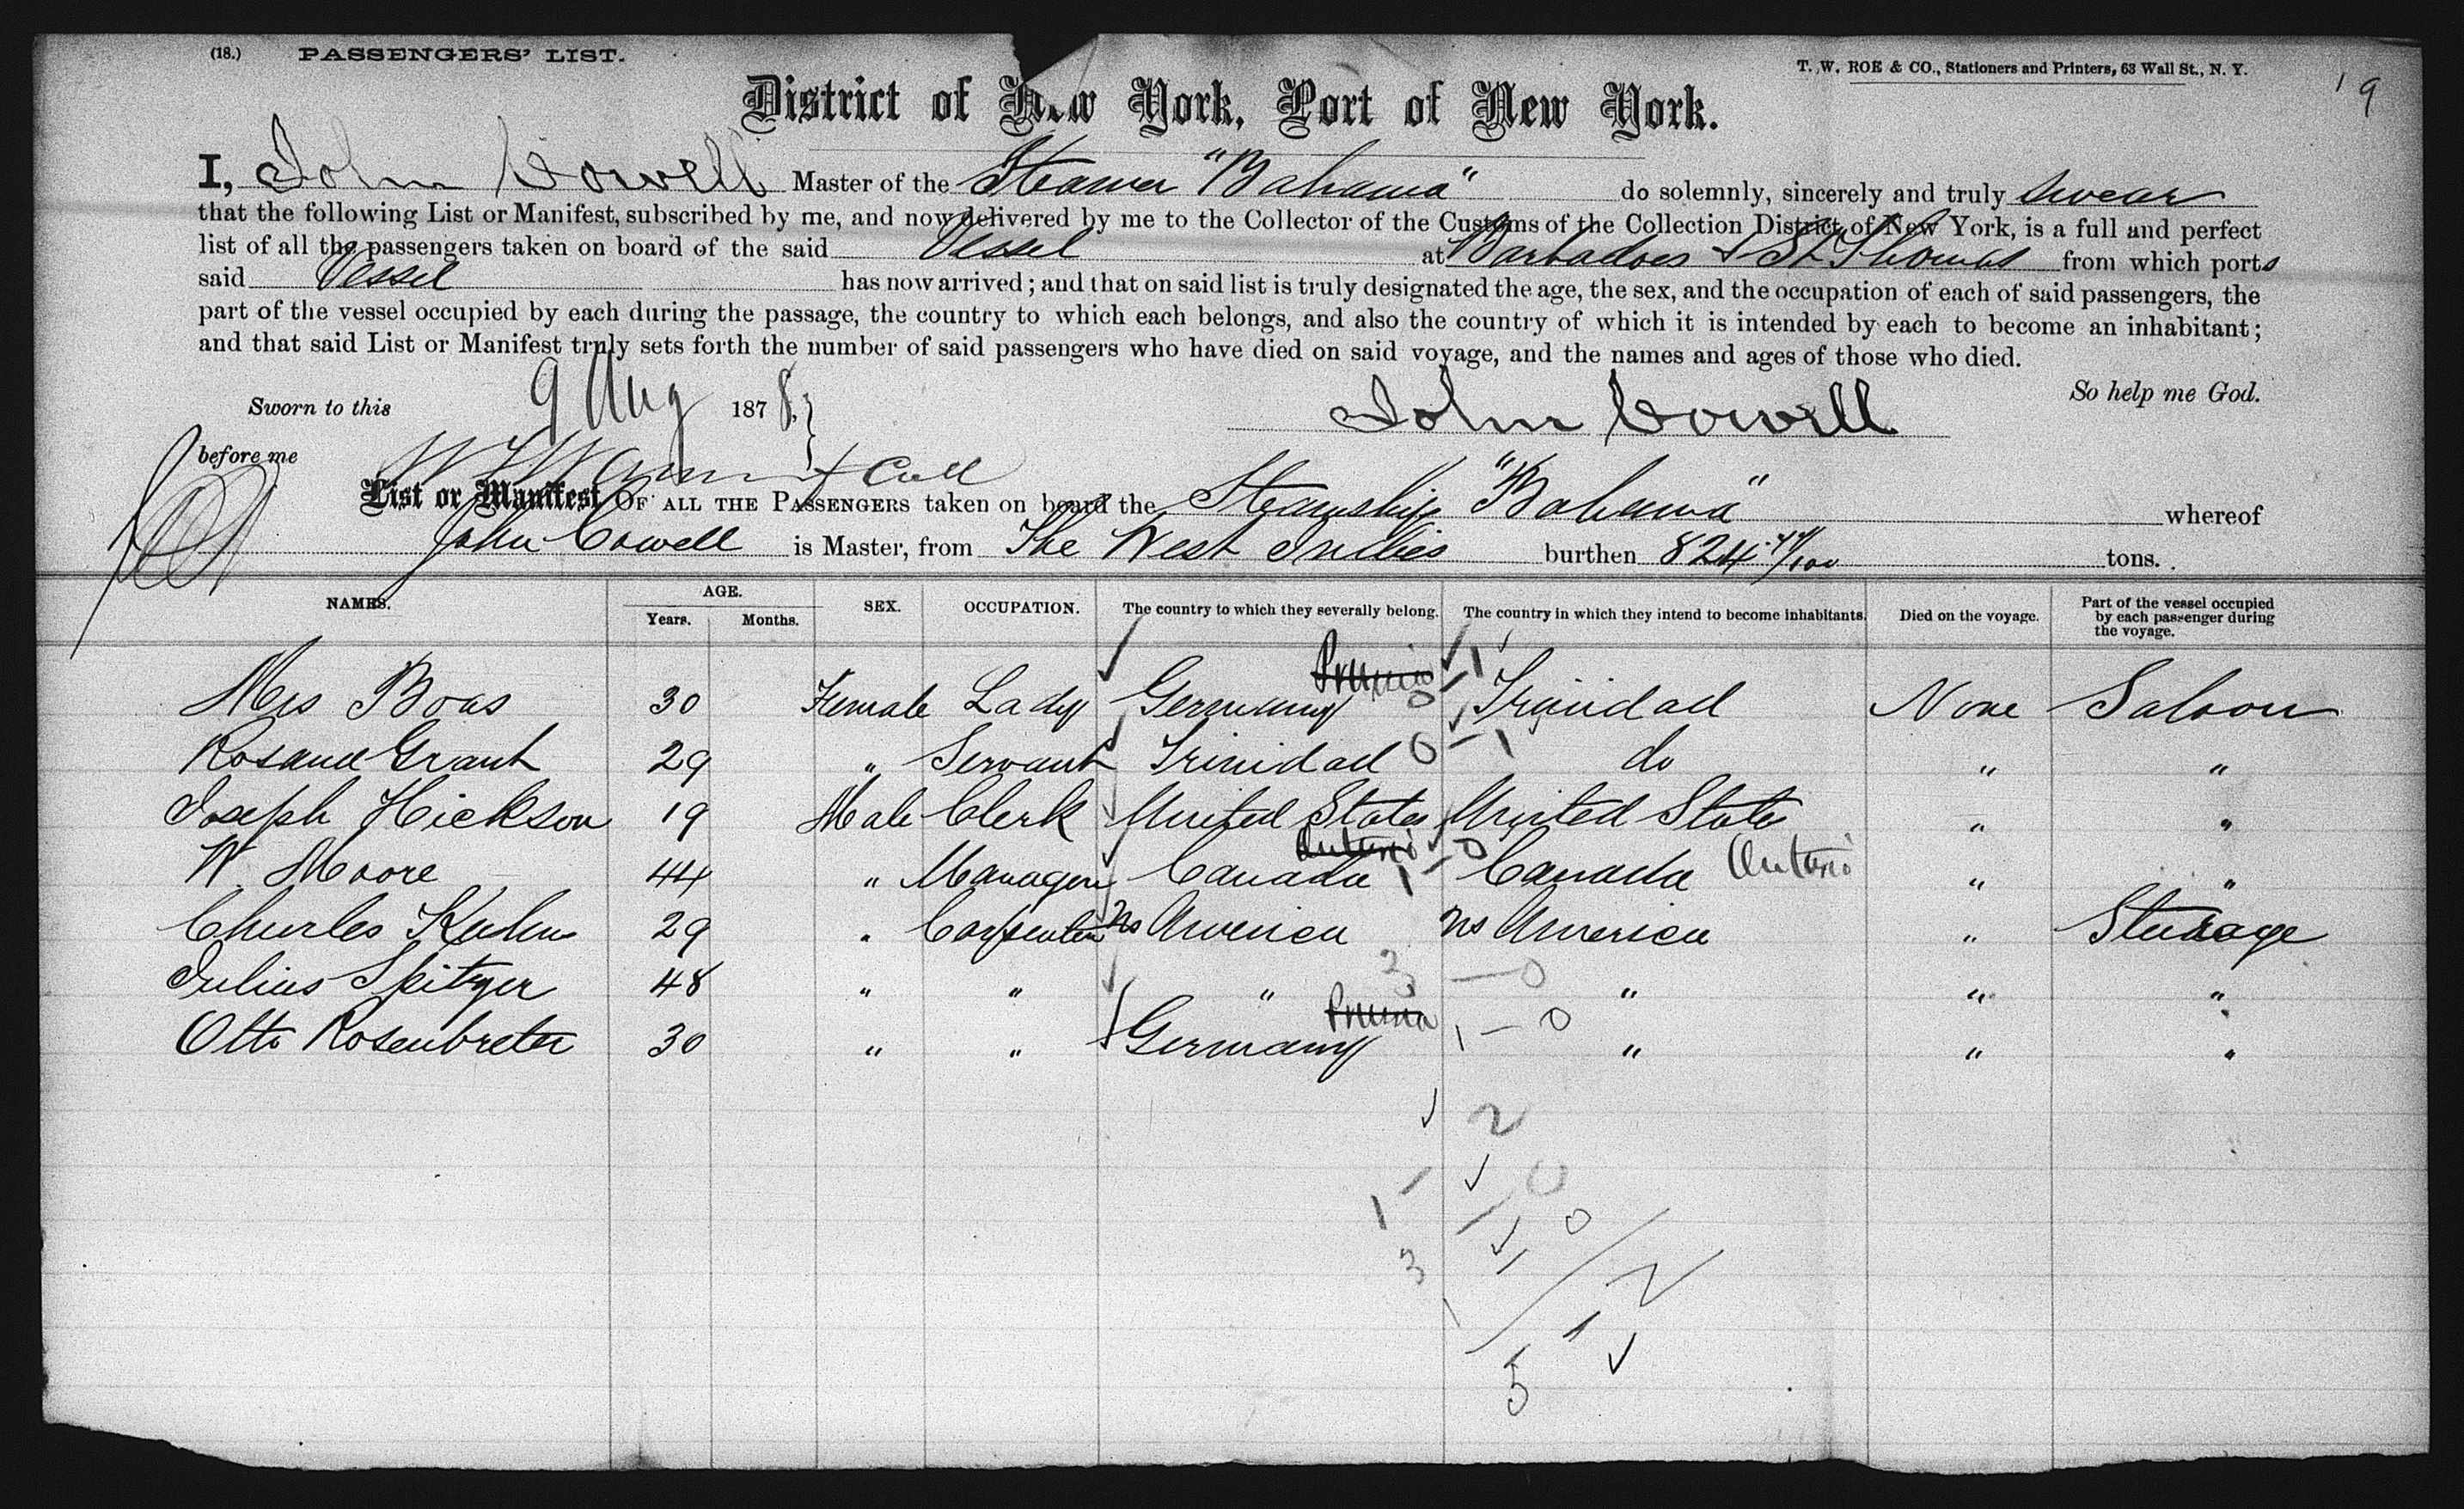 (18.) PASSENGERS' LIST.
T. W. ROE & CO., Stationers and Printers, 63 Wall St., N. Y.
19
District of New York, Port of New York.
I, John Cowell Master of the Steamer "Bahama" do solemnly, sincerely and truly swear
that the following List or Manifest, subscribed by me, and now delivered by me to the Collector of the Customs of the Collection District of New York, is a full and perfect
list of all the passengers taken on board of the said Vessel at Barbadoes & St Thomas from which ports
said Vessel has now arrived; and that on said list is truly designated the age, the sex, and the occupation of each of said passengers, the
part of the vessel occupied by each during the passage, the country to which each belongs, and also the country of which it is intended by each to become an inhabitant;
and that said List or Manifest truly sets forth the number of said passengers who have died on said voyage, and the names and ages of those who died.
So help me God.
Sworn to this 9 Aug 1878. John Cowell
before me
List or Manifest OF ALL THE PASSENGERS taken on board the Steamship "Bahama" whereof
John Cowell is Master, from The West Indies burthen 824 44/100 tons.
NAMES. AGE. Years. Months. SEX. OCCUPATION. The country to which they severally belong. The country in which they intend to become inhabitants. Died on the voyage. Part of the vessel occupied by each passenger during the voyage.
Prussia
Mrs Boas 30 Female Lady Germany 0 - 1 Trinidad None Saloon
Rosand Grant 29 " Servant Trinidad 0 - 1 do " "
Joseph Hickson 19 Male Clerk United States United States " "
Ontario
W Moore 44 " Manager Canada 1 - 0 Canada Ontario " "
Charles Kuhn 29 " Carpenter ns America ns America " Steerage
Julius Spitzer 48 " " " 3 - 0 " " "
Prussia
Otto Rosenbreter 30 " " Germany 1 - 0 " " "
2
0
1 0
3
2
1
5